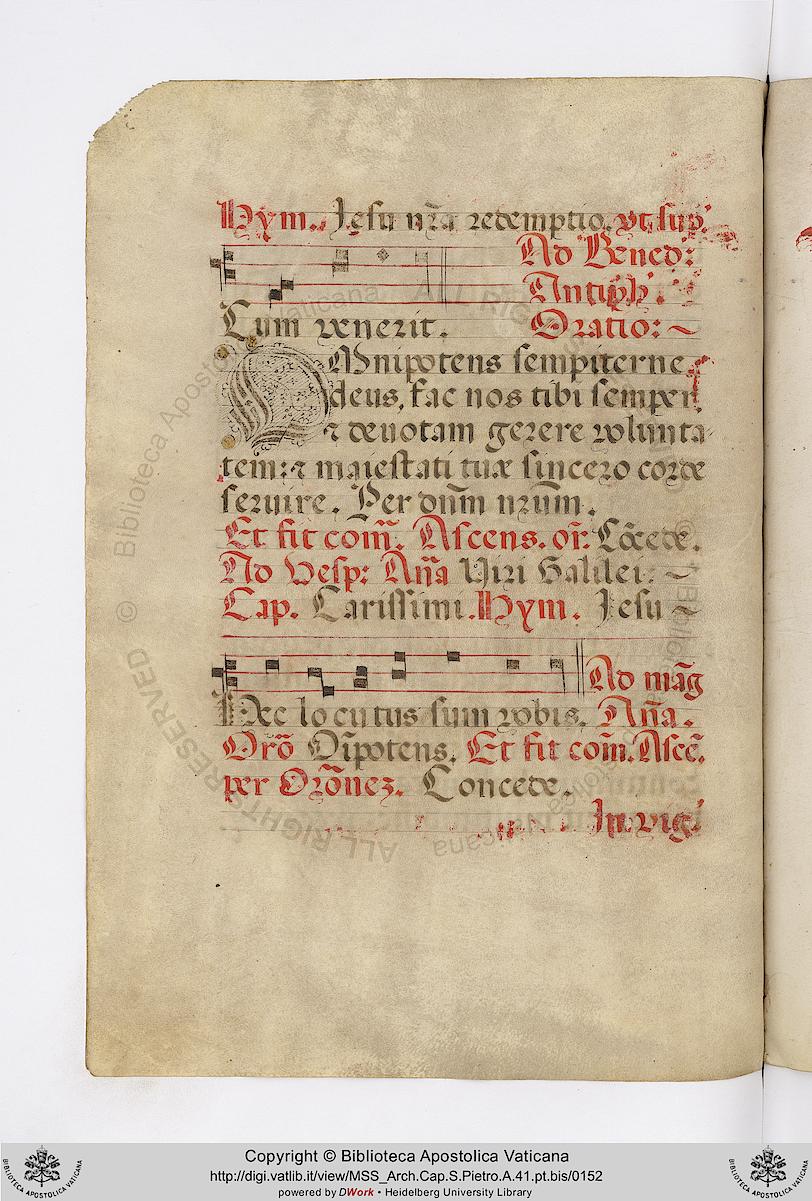 Hym. Jesu nr̃a redemptio. vt sup.
Ad Bened:
Antiph.
Cum venerit. Oratio: ~
OMnipotens sempiterne
deus, fac nos tibi semper,
⁊ deuotam gerere volunta
tem: ⁊ maiestati tuæ sincero corde
seruire. Per dñm nrũm.
Et fit com̃. Ascens. or̃: Cõcede.
Ad Vesp: Añа Viri Galilei. ~
Cap. Carissimi. Hym. Jesu ~
Ad mag̃
Hæc locutus sum vobis. Añа.
Orõ Oĩpotens. Et fit com̃. Ascẽ.
per Orõnez. Concede.
In vig.
© Biblioteca Apostolica Vaticana
ALL RIGHTS RESERVED
Copyright © Biblioteca Apostolica Vaticana
http://digi.vatlib.it/view/MSS_Arch.Cap.S.Pietro.A.41.pt.bis/0152
powered by DWork • Heidelberg University Library